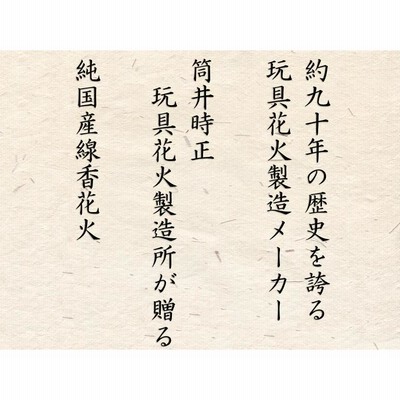 約九十年の歴史を誇る
玩具花火製造メーカー
筒井時正
玩具花火製造所が贈る
純国産線香花火